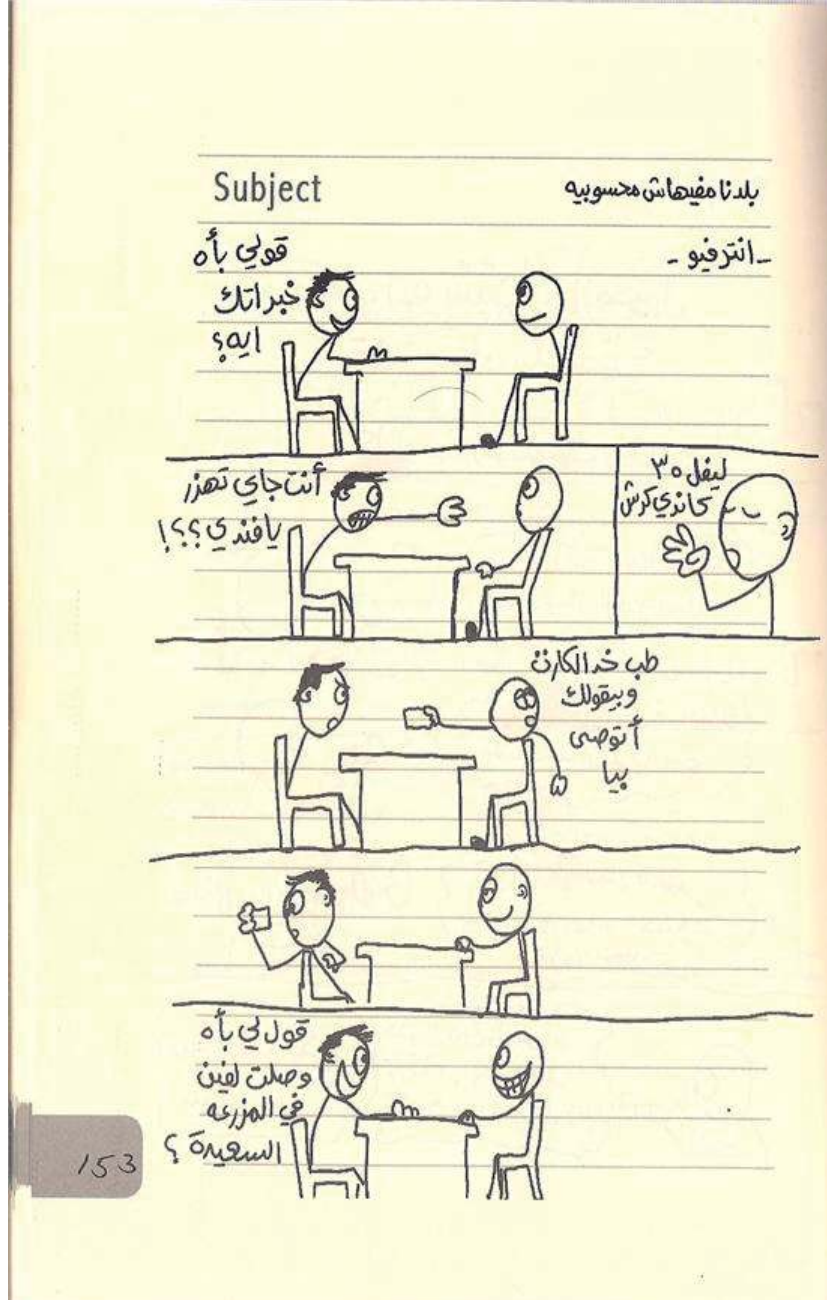 Subject
بلدنا مفيهاش محسوبيه
- انترفيو -
قولي بأه
خبراتك
ايه؟
ليفل ٣٥
كاندي كرش
أنت جاي تهزر
يا فندي؟؟؟!
طب خد الكارت
وبيقولك
أتوصى
بيا
قول لي بأه
وصلت لفين
في المزرعه
السعيدة؟
153